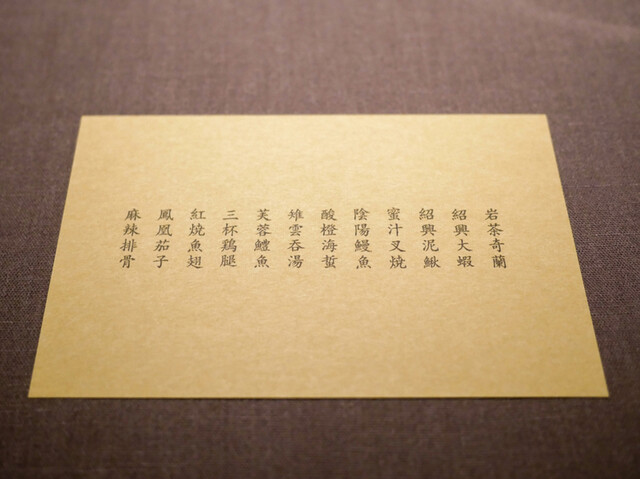 岩茶奇蘭
紹興大蝦
紹興泥鰍
蜜汁叉焼
陰陽鰻魚
酸橙海蜇
雉雲呑湯
芙蓉鱧魚
三杯鶏腿
紅焼魚翅
鳳凰茄子
麻辣排骨